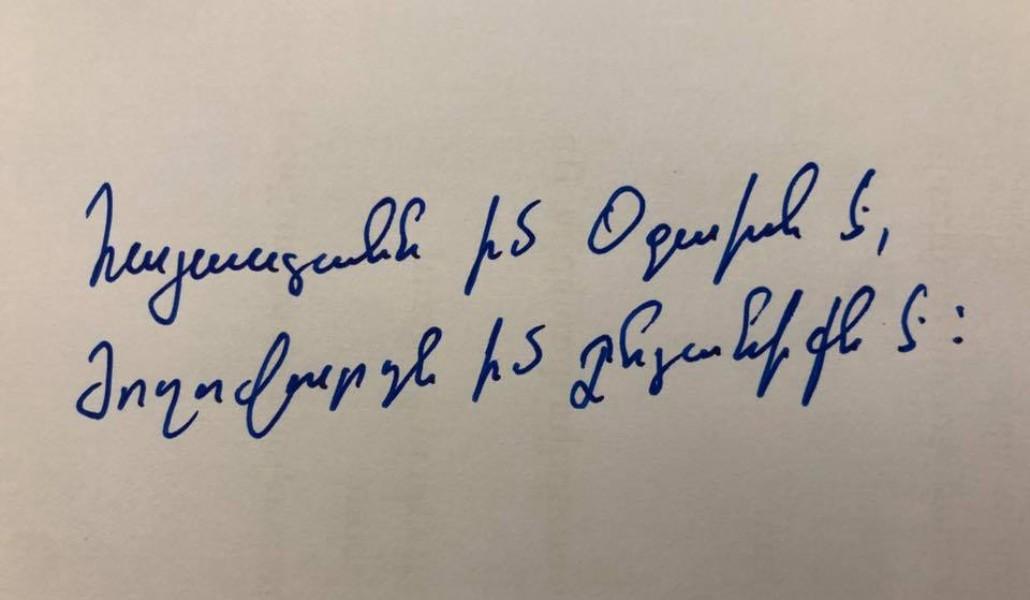 Հայաստանն իմ Օջախն է,
Ժողովուրդն իմ Ընտանիքն է: